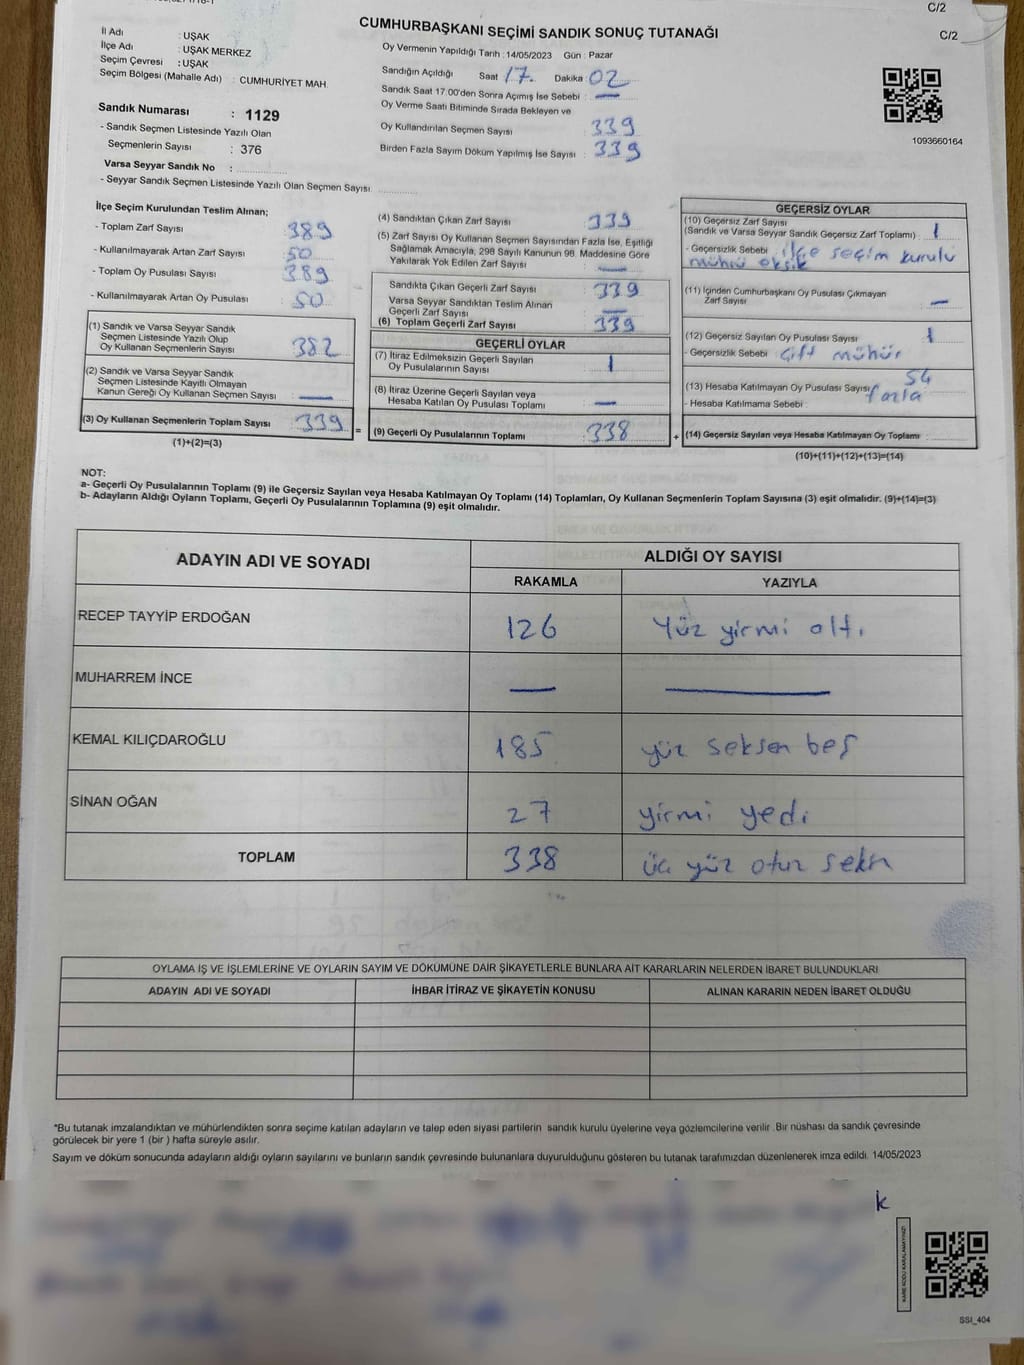 C/2
C/2
CUMHURBAŞKANI SEÇİMİ SANDIK SONUÇ TUTANAĞI
İl Adı : UŞAK
İlçe Adı : UŞAK MERKEZ
Seçim Çevresi : UŞAK
Seçim Bölgesi (Mahalle Adı) : CUMHURİYET MAH.
Oy Vermenin Yapıldığı Tarih : 14/05/2023 Gün : Pazar
Sandığın Açıldığı Saat 17. Dakika : 02
Sandık Saat 17.00'den Sonra Açımış İse Sebebi : —
Oy Verme Saati Bitiminde Sırada Bekleyen ve
Oy Kullandırılan Seçmen Sayısı 339
Birden Fazla Sayım Döküm Yapılmış İse Sayısı : 339
1093660164
Sandık Numarası : 1129
- Sandık Seçmen Listesinde Yazılı Olan
Seçmenlerin Sayısı : 376
Varsa Seyyar Sandık No :
- Seyyar Sandık Seçmen Listesinde Yazılı Olan Seçmen Sayısı
İlçe Seçim Kurulundan Teslim Alınan;
- Toplam Zarf Sayısı : 389
- Kullanılmayarak Artan Zarf Sayısı : 50
- Toplam Oy Pusulası Sayısı : 389
- Kullanılmayarak Artan Oy Pusulası : 50
(1) Sandık ve Varsa Seyyar Sandık
Seçmen Listesinde Yazılı Olup
Oy Kullanan Seçmenlerin Sayısı : 382
(2) Sandık ve Varsa Seyyar Sandık
Seçmen Listesinde Kayıtlı Olmayan
Kanun Gereği Oy Kullanan Seçmen Sayısı : —
(3) Oy Kullanan Seçmenlerin Toplam Sayısı : 339 =
(1)+(2)=(3)
(4) Sandıktan Çıkan Zarf Sayısı : 339
(5) Zarf Sayısı Oy Kullanan Seçmen Sayısından Fazla İse, Eşitliği
Sağlamak Amacıyla, 298 Sayılı Kanunun 98. Maddesine Göre
Yakılarak Yok Edilen Zarf Sayısı : —
Sandıkta Çıkan Geçerli Zarf Sayısı : 339
Varsa Seyyar Sandıktan Teslim Alınan
Geçerli Zarf Sayısı : —
(6) Toplam Geçerli Zarf Sayısı : 339
GEÇERLİ OYLAR
(7) İtiraz Edilmeksizin Geçerli Sayılan
Oy Pusulalarının Sayısı : 1
(8) İtiraz Üzerine Geçerli Sayılan veya
Hesaba Katılan Oy Pusulası Toplamı : —
(9) Geçerli Oy Pusulalarının Toplamı : 338 +
GEÇERSİZ OYLAR
(10) Geçersiz Zarf Sayısı
(Sandık ve Varsa Seyyar Sandık Geçersiz Zarf Toplamı) : 1
- Geçersizlik Sebebi : ilçe seçim kurulu
mührü eksik
(11) İçinden Cumhurbaşkanı Oy Pusulası Çıkmayan
Zarf Sayısı : —
(12) Geçersiz Sayılan Oy Pusulası Sayısı : 1
- Geçersizlik Sebebi : çift mühür
(13) Hesaba Katılmayan Oy Pusulası Sayısı : 54
fazla
- Hesaba Katılmama Sebebi :
(14) Geçersiz Sayılan veya Hesaba Katılmayan Oy Toplamı :
(10)+(11)+(12)+(13)=(14)
NOT:
a- Geçerli Oy Pusulalarının Toplamı (9) ile Geçersiz Sayılan veya Hesaba Katılmayan Oy Toplamı (14) Toplamları, Oy Kullanan Seçmenlerin Toplam Sayısına (3) eşit olmalıdır. (9)+(14)=(3)
b- Adayların Aldığı Oyların Toplamı, Geçerli Oy Pusulalarının Toplamına (9) eşit olmalıdır.
ADAYIN ADI VE SOYADI ALDIĞI OY SAYISI
RAKAMLA YAZIYLA
RECEP TAYYİP ERDOĞAN 126 Yüz yirmi altı
MUHARREM İNCE — —
KEMAL KILIÇDAROĞLU 185 yüz seksen beş
SİNAN OĞAN 27 yirmi yedi
TOPLAM 338 üç yüz otuz sekn
OYLAMA İŞ VE İŞLEMLERİNE VE OYLARIN SAYIM VE DÖKÜMÜNE DAİR ŞİKAYETLERLE BUNLARA AİT KARARLARIN NELERDEN İBARET BULUNDUKLARI
ADAYIN ADI VE SOYADI İHBAR İTİRAZ VE ŞİKAYETİN KONUSU ALINAN KARARIN NEDEN İBARET OLDUĞU
*Bu tutanak imzalandıktan ve mühürlendikten sonra seçime katılan adayların ve talep eden siyasi partilerin sandık kurulu üyelerine veya gözlemcilerine verilir .Bir nüshası da sandık çevresinde
görülecek bir yere 1 (bir ) hafta süreyle asılır.
Sayım ve döküm sonucunda adayların aldığı oyların sayılarını ve bunların sandık çevresinde bulunanlara duyurulduğunu gösteren bu tutanak tarafımızdan düzenlenerek imza edildi. 14/05/2023
k
KARE KODU KARALAMAYINIZ!
SSI_404